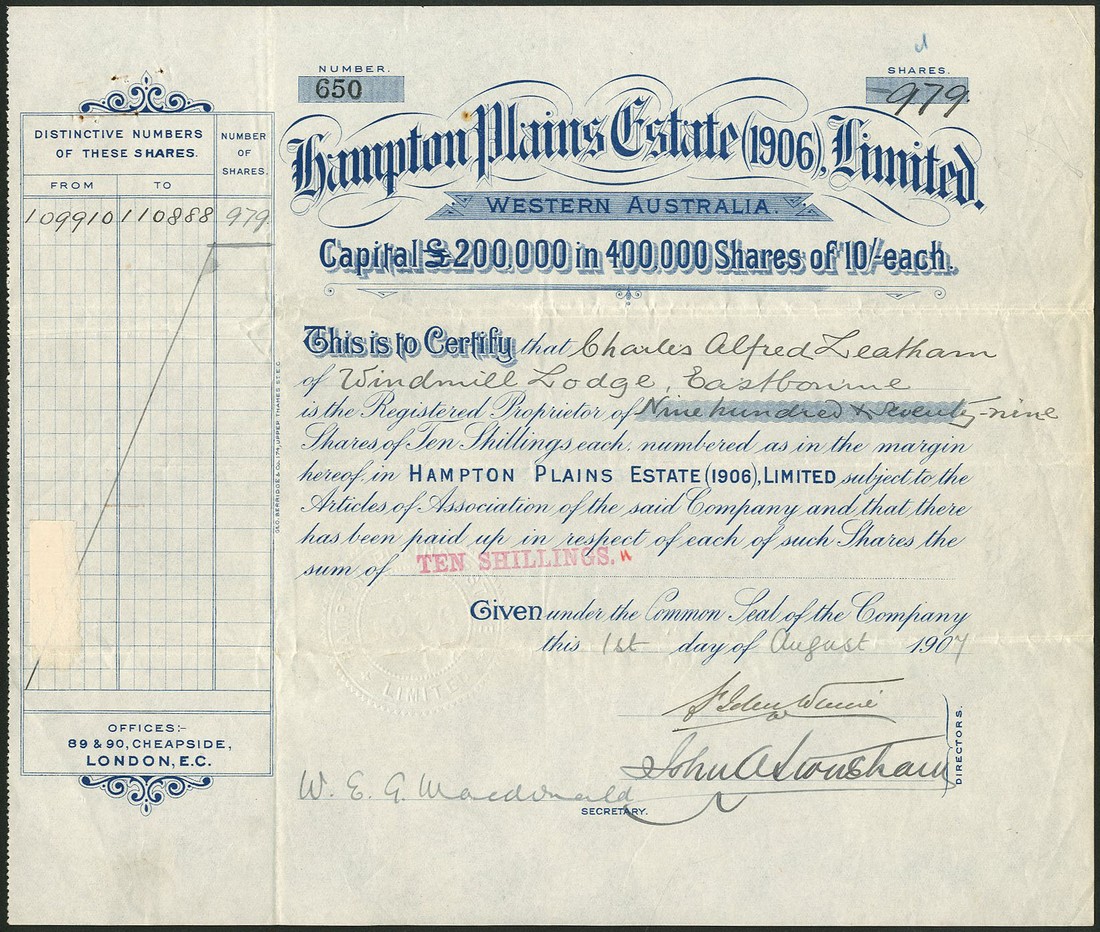 NUMBER.
650
SHARES.
979
Hampton Plains Estate (1906), Limited.
WESTERN AUSTRALIA.
Capital £200,000 in 400,000 Shares of 10/- each.
DISTINCTIVE NUMBERS
OF THESE SHARES.
NUMBER
OF
SHARES.
FROM TO
109910 110888 979
This is to Certify that Charles Alfred Leatham
of Windmill Lodge, Eastbourne
is the Registered Proprietor of Nine hundred & seventy-nine
Shares of Ten Shillings each numbered as in the margin
hereof, in HAMPTON PLAINS ESTATE (1906), LIMITED subject to the
Articles of Association of the said Company and that there
has been paid up in respect of each of such Shares the
sum of TEN SHILLINGS.
Given under the Common Seal of the Company
this 1st day of August 1907
LIMITED
John A
DIRECTORS.
W. E. G. Macdonald
SECRETARY.
OFFICES:-
89 & 90, CHEAPSIDE,
LONDON, E.C.
GEO. BERRIDGE & CO. 174, UPPER THAMES ST. E.C.